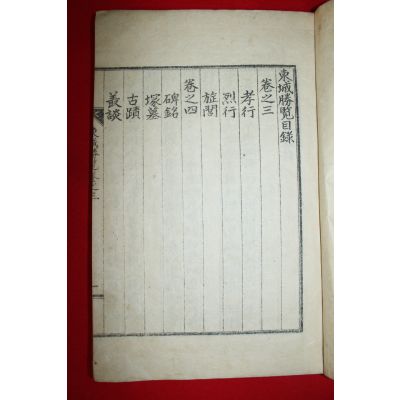 東城勝覽目錄
卷之三
孝行
烈行
旌閭
卷之四
碑銘
塚墓
古蹟
叢談